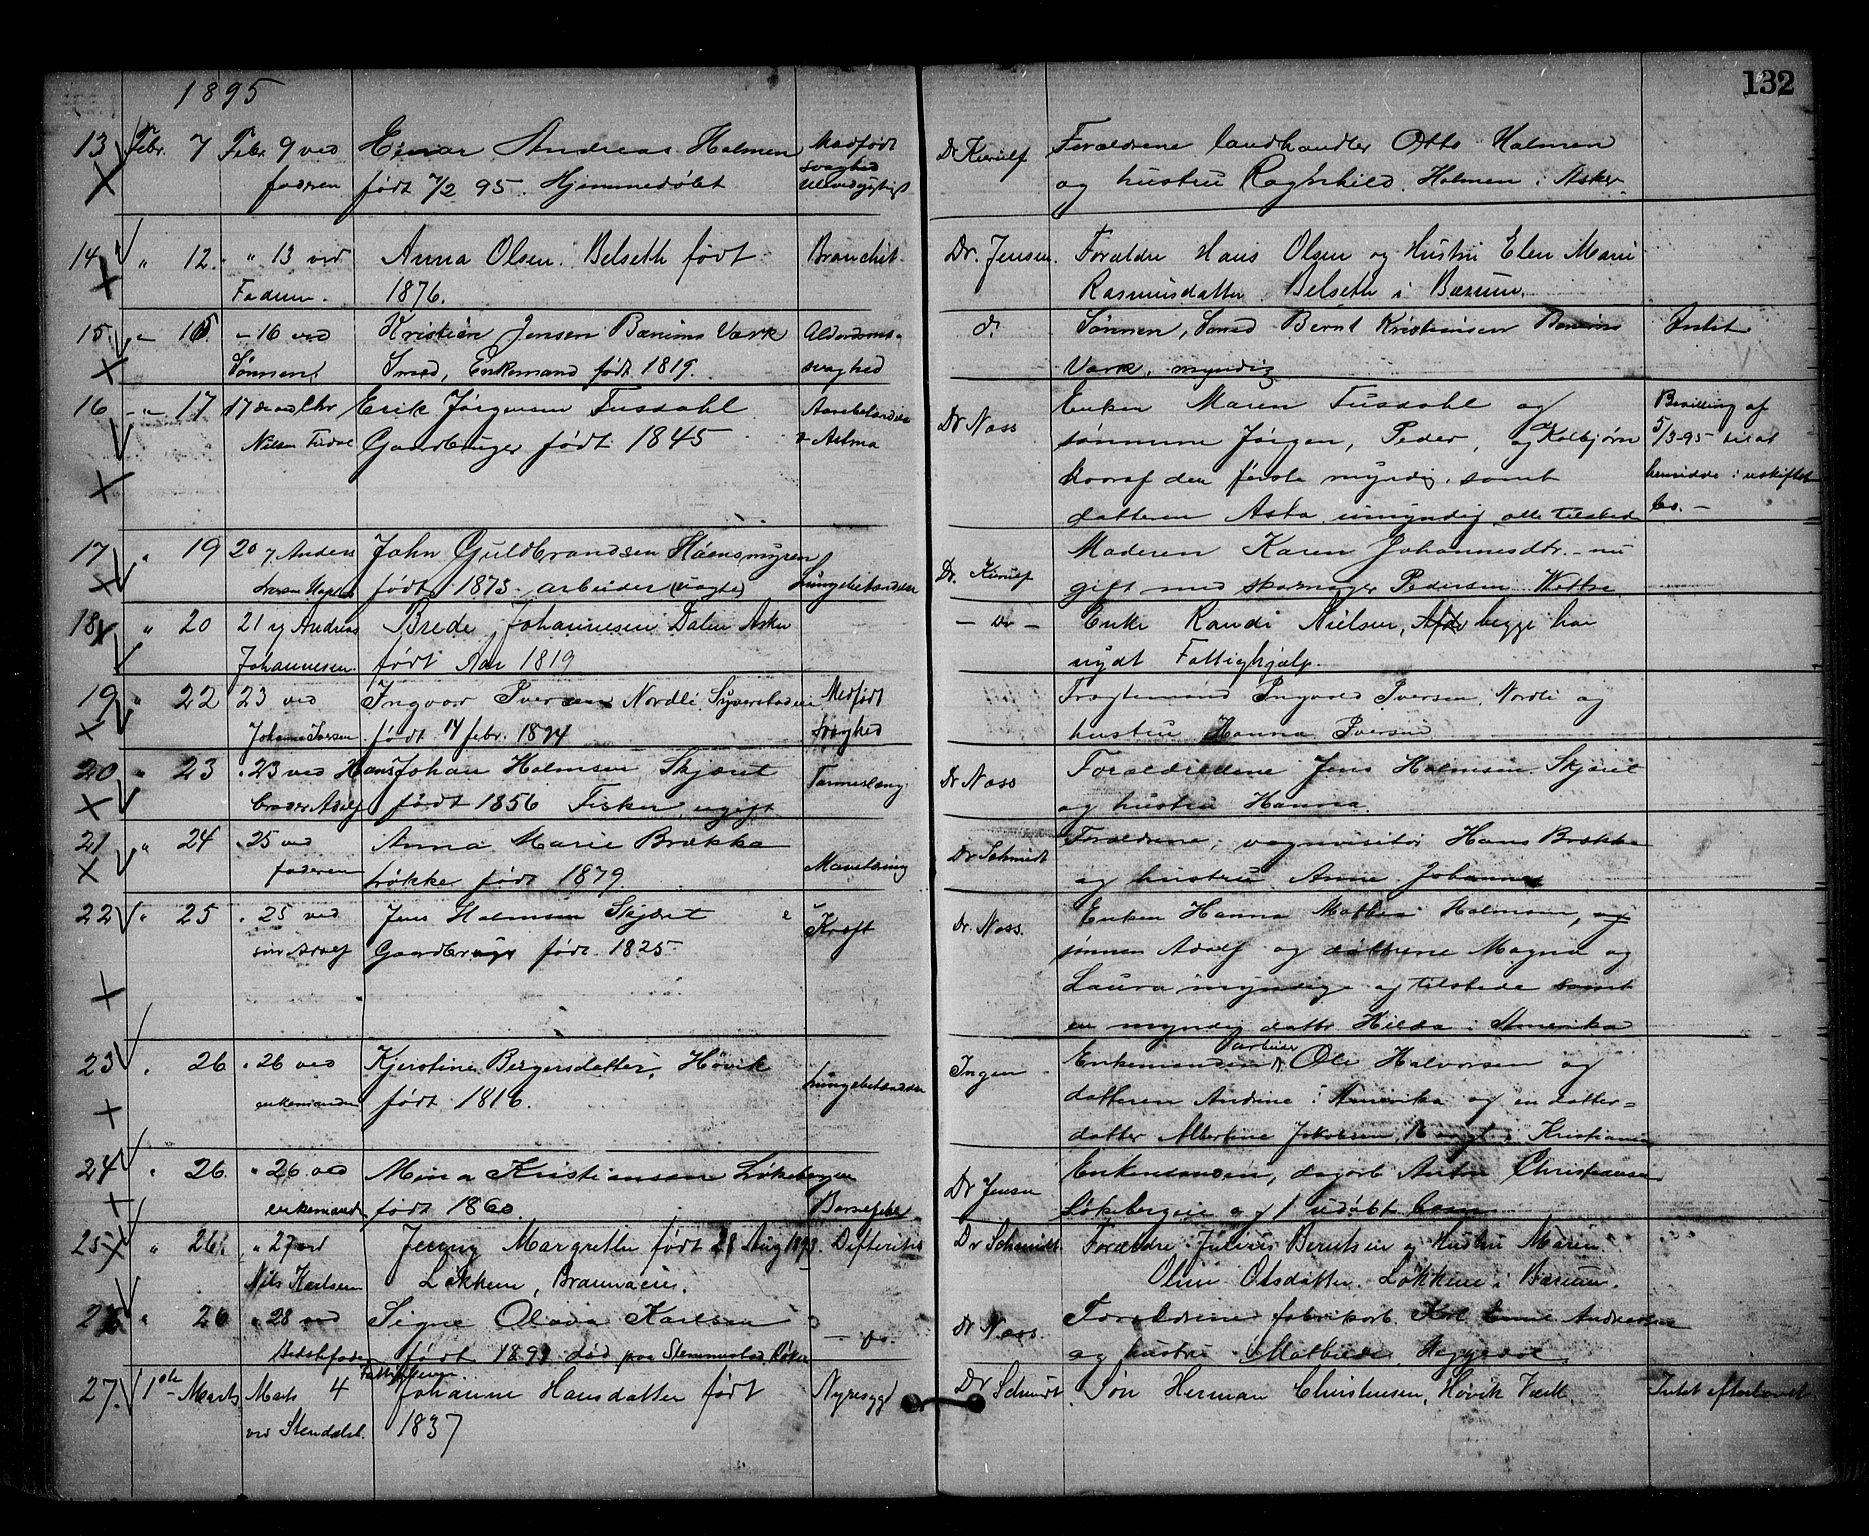 1895
132
13 Febr. 7 Febr. 9 ved Einar Andreas Holmen Medfødt Dr Kierulf Forældrene landhandler Otto Holmen
faderen født 7/2 95. Hjemmedøbt svaghed og hustru Ragnhild Holmen i Asker
14 " 12. " 13 ved Anna Olsen Belseth født Bronchit. Dr. Jensen. Forældre Hans Olsen og Hustru Elen Marie
Faderen. 1876. Rasmusdatter Belseth i Bærum.
15. " 15. - 16 ved Kristian Jensen Bærums Værk Alderdoms- do Sønnen, Smed Bernt Kristiansen Bærums Intet
Sønnen. Smed, Enkemand født 1819. svaghed Værk, myndig
16 - " - 17 17 de ved Chr Erik Jørgensen Fusdahl Aarebetændelse Dr Næss Enken Maren Fusdahl og Bevilling af
Nilsen Fusdal Gaardbruger født 1845 & Astma sønnerne Jørgen, Peder, og Kolbjørn 5/3-95 til at
hvoraf den første myndig, samt hensidde i uskiftet
datteren Asta umyndig alle tilstede bo. -
17 " 19 20 Anders John Guldbrandsen født 1873 arbeider (uægte) Lungebetændelse Dr. Kierulf Moderen Karen Johannesdtr. - nu
gift med Pedersen
18 " 20 21 Andreas Brede Johannesen Dalen Asker - Do - Enke Randi Nielsen, begge har
Johannesen. født Aar 1819 nydt Fattighjælp.
19 " 22 23 ved Ingvar Iversen Nordli, Syverstadeie Medfødt Ingvald Iversen Nordli og
Johannes Iversen født 14 febr. 1894 svaghed hustru Hanna Iversen
20 " 23 " 23 ved Hans Johan Holmsen Skjæret Dr Næss Forældrene Jens Holmsen Skjæret
broder Adolf født 1856 Fisker, ugift og hustru Hanna
21 " 24 " 25 ved Anna Marie Brække Dr Schmidt Forældrene, vognvisitør Hans Brække
faderen frøken født 1879. og hustru Anne Johanne
22 " 25 " 25 ved Jens Holmsen Skjæret Kræft Dr. Næss. Enken Hanna Mathea Holmsen, og
søn Adolf Gaardbruger født 1825 sønnen Adolf og døttrene Magna og
Laura myndige og tilstede samt
en myndig datter Hilda i Amerika
23 " 26 " 26 ved Kjerstine Bergersdatter, Høvik Lungebetændelse Ingen Enkemanden arbeider Ole Halvorsen og
enkemanden født 1816. datteren Andrine i Amerika og en datter-
datter Albertine Jakobsen, i Kristiania
24 " 26. " 26 ved Mina Kristiansen Løkebergeie Barselfeber Dr Jensen Enkemanden, dagarb. Anton Christiansen
enkemand født 1860. Løkebergeie og 1 udøbt barn
25 " 26 " 27 ved Jenny Margrethe født 28 Aug 1893. Difteritis Dr Schmidt Forældre Julius Berntsen og Hustru Maren
Nils Karlsen Løkkene, Løkkene i Bærum.
26 " 26 " 28 ved Signe Olava Karlsen - do. Dr Næss. Forældrene fabrikarb. Karl Emil Andreassen
Bedstefader født 1891 død paa Slemmestad, Røken og hustru Mathilde
27. 1ste Marts Marts 4 Johanne Hansdatter født Nyresygd Dr Schmidt Søn Herman Christensen, Høvik Værk Intet efterladt
ved Stendalsl. 1837